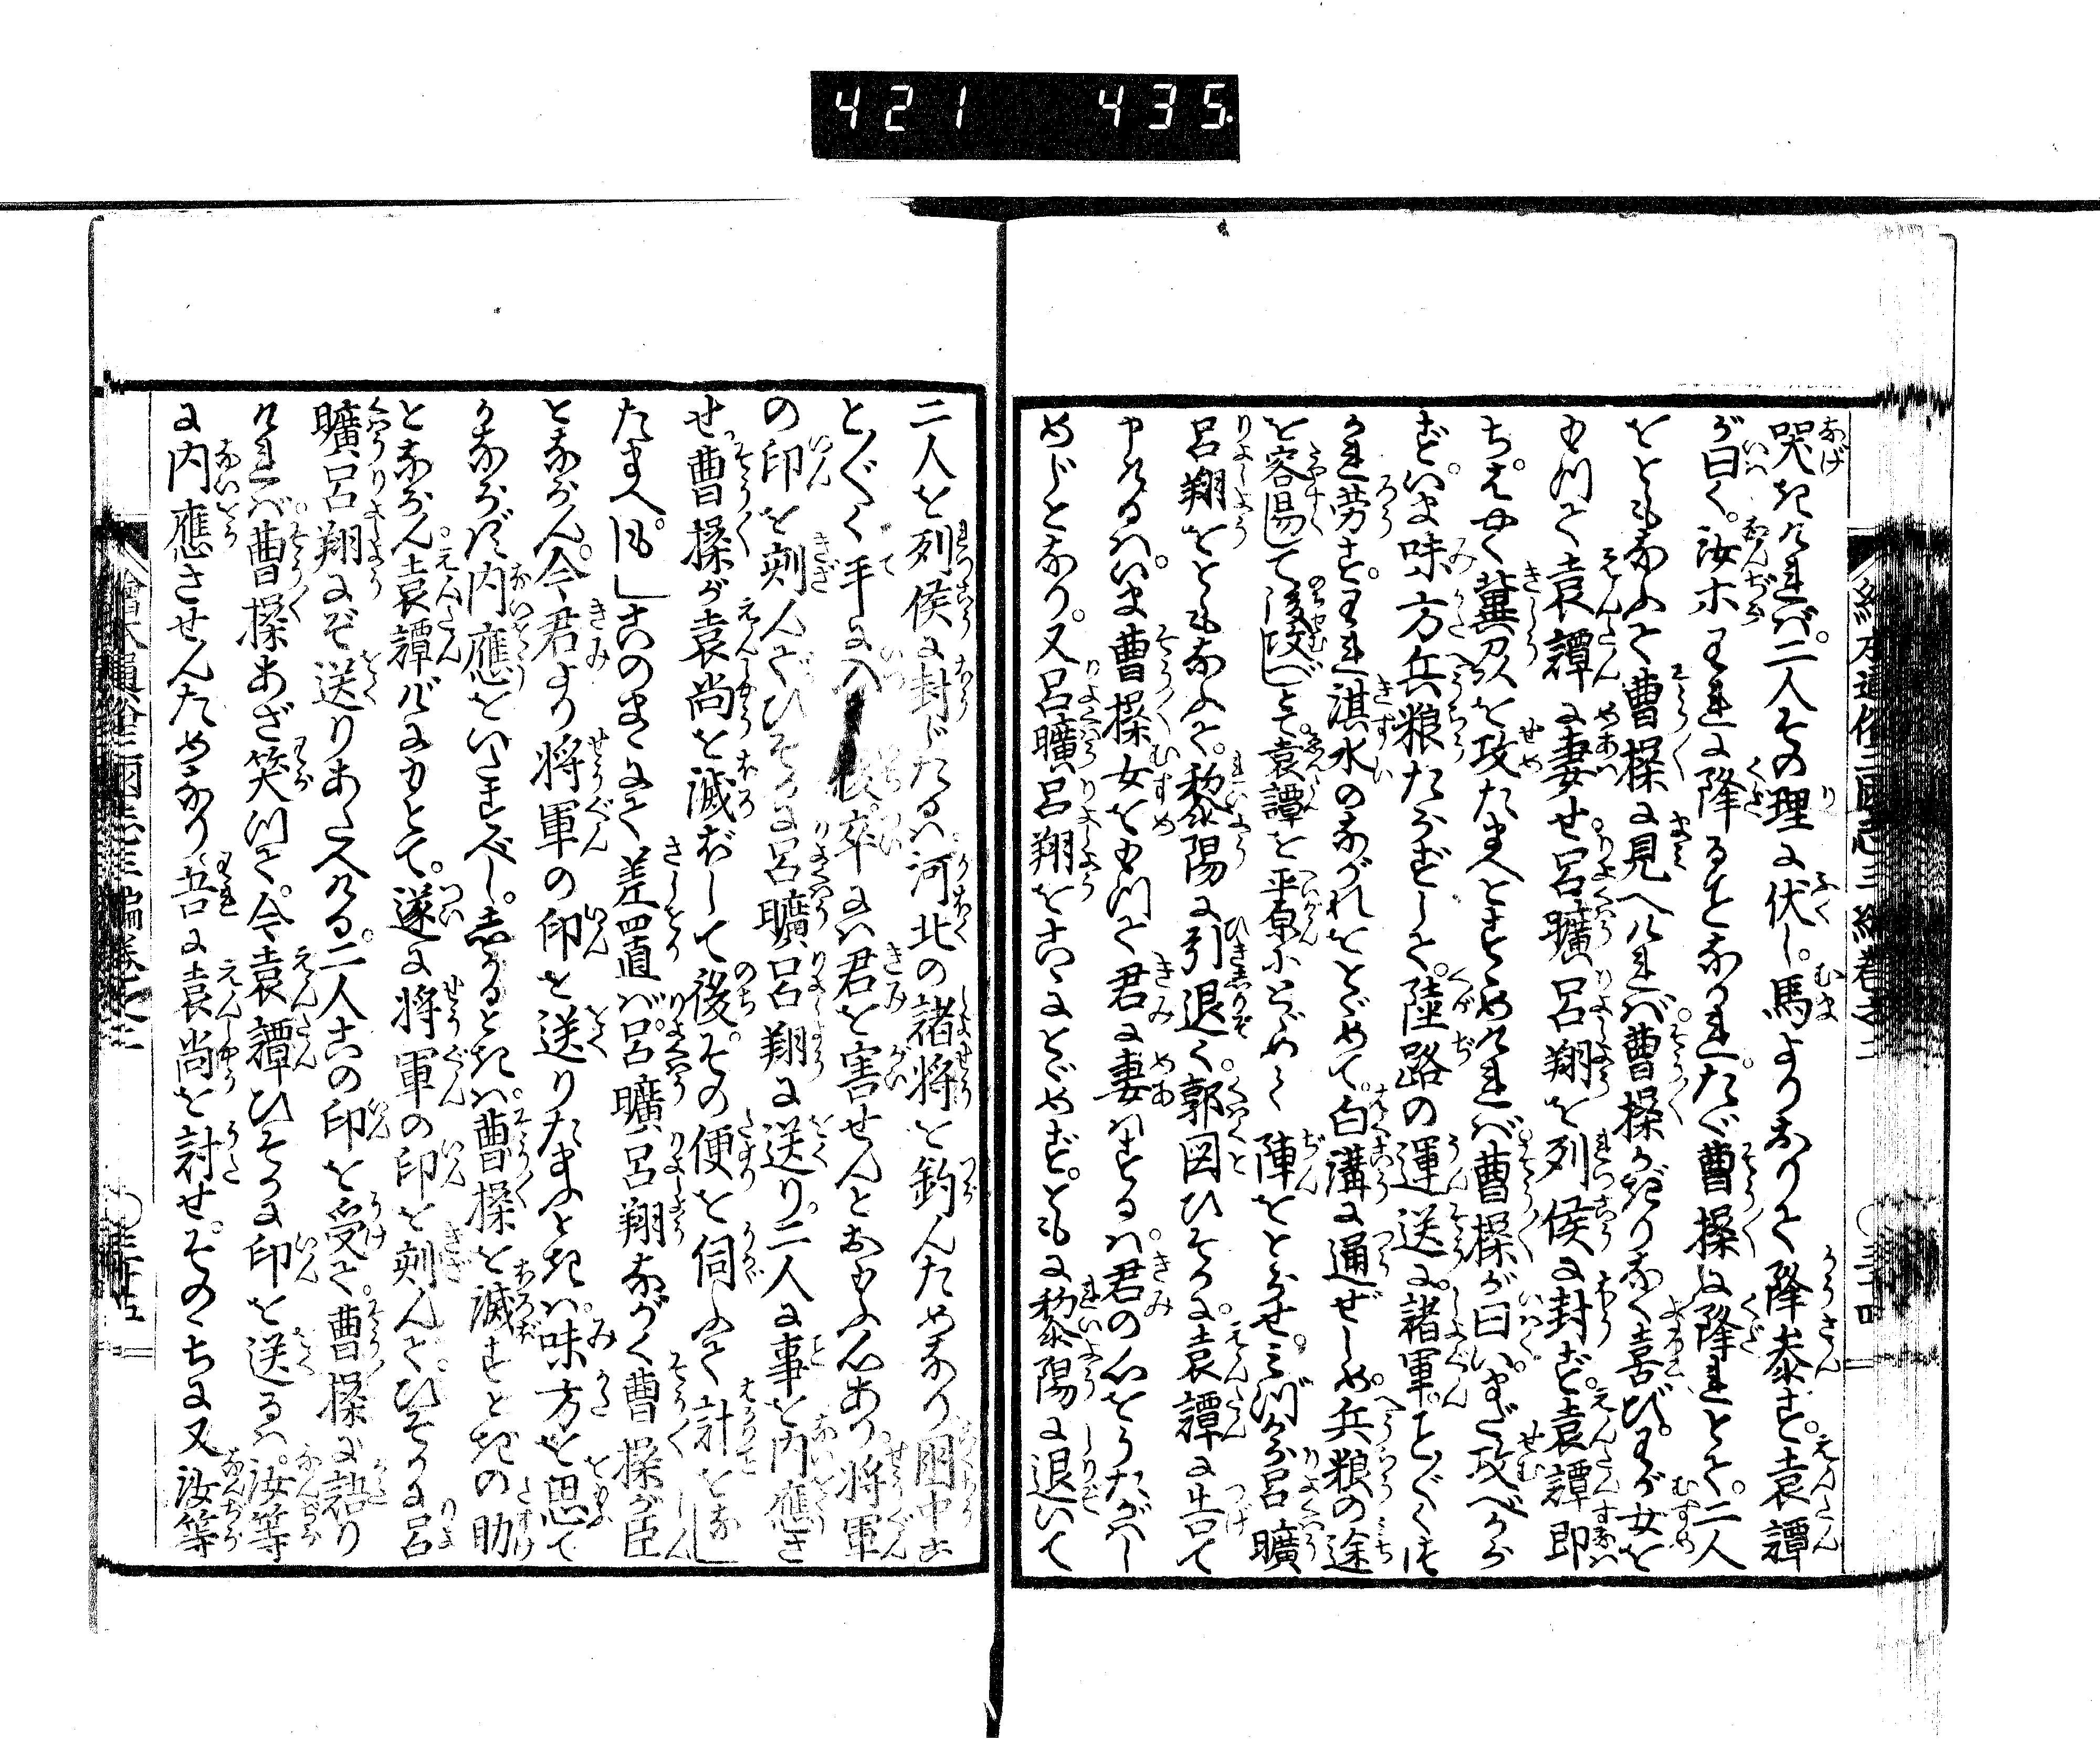 421 435.
絵本通俗三國志三編巻之二 〇三十四
哭きければ。二人その理に伏し。馬よりおりて降参す。袁譚
が曰く。汝等われに降ることなかれ。たゞ曹操に降れとて。二人
をともなふて曹操に見へければ。曹操かぎりなく喜び。わが女を
もつて袁譚に妻せ。呂曠呂翔を列侯に封ず。袁譚即
ち。はやく冀州を攻たまへとすゝめければ。曹操が曰。いまだ攻べから
ず。いま味方兵粮たらずして。陸路の運送に。諸軍。ことごとく
かれ労す。われ淇水のながれをとゞめて。白溝に通ぜしめ。兵粮の途
を容易して後攻べしとて。袁譚を平原にとゞめて陣をとらせ。みづから呂曠
呂翔をともなふて。黎陽に引退く。郭図ひそかに。袁譚に告て
申けるハ。いま曹操女をもつて君に妻はするハ。君の心をうたがハし
めじとなり。又呂曠呂翔をこゝにとゞめず。ともに黎陽に退いて
二人を列侯に封じたるハ。河北の諸将を釣んためなり。
とく手に入 後卒にハ君を害せんとおもふ心あり。将軍
の印を刻んで。ひそかに呂曠呂翔に送り。二人に事を内應さ
せ。曹操が袁尚を滅ぼして後。その便を伺ふて計をなし
たまへ。このまゝにて差置バ。呂曠呂翔ながく曹操が臣
とならん。今君より将軍の印を送りたまふときハ。味方を思て
かならず内應をいたすべし。しかるときハ。曹操を滅すときの助
とならん。袁譚げにもとて。遂に将軍の印を刻んで。ひそかに呂
曠呂翔にぞ送りあたへける。二人この印を受て。曹操に語り
ければ。曹操あざ笑つて。今袁譚ひそかに印を送るハ。汝等
に内應させんためなり。吾に袁尚を討せ。そのゝちに又汝等